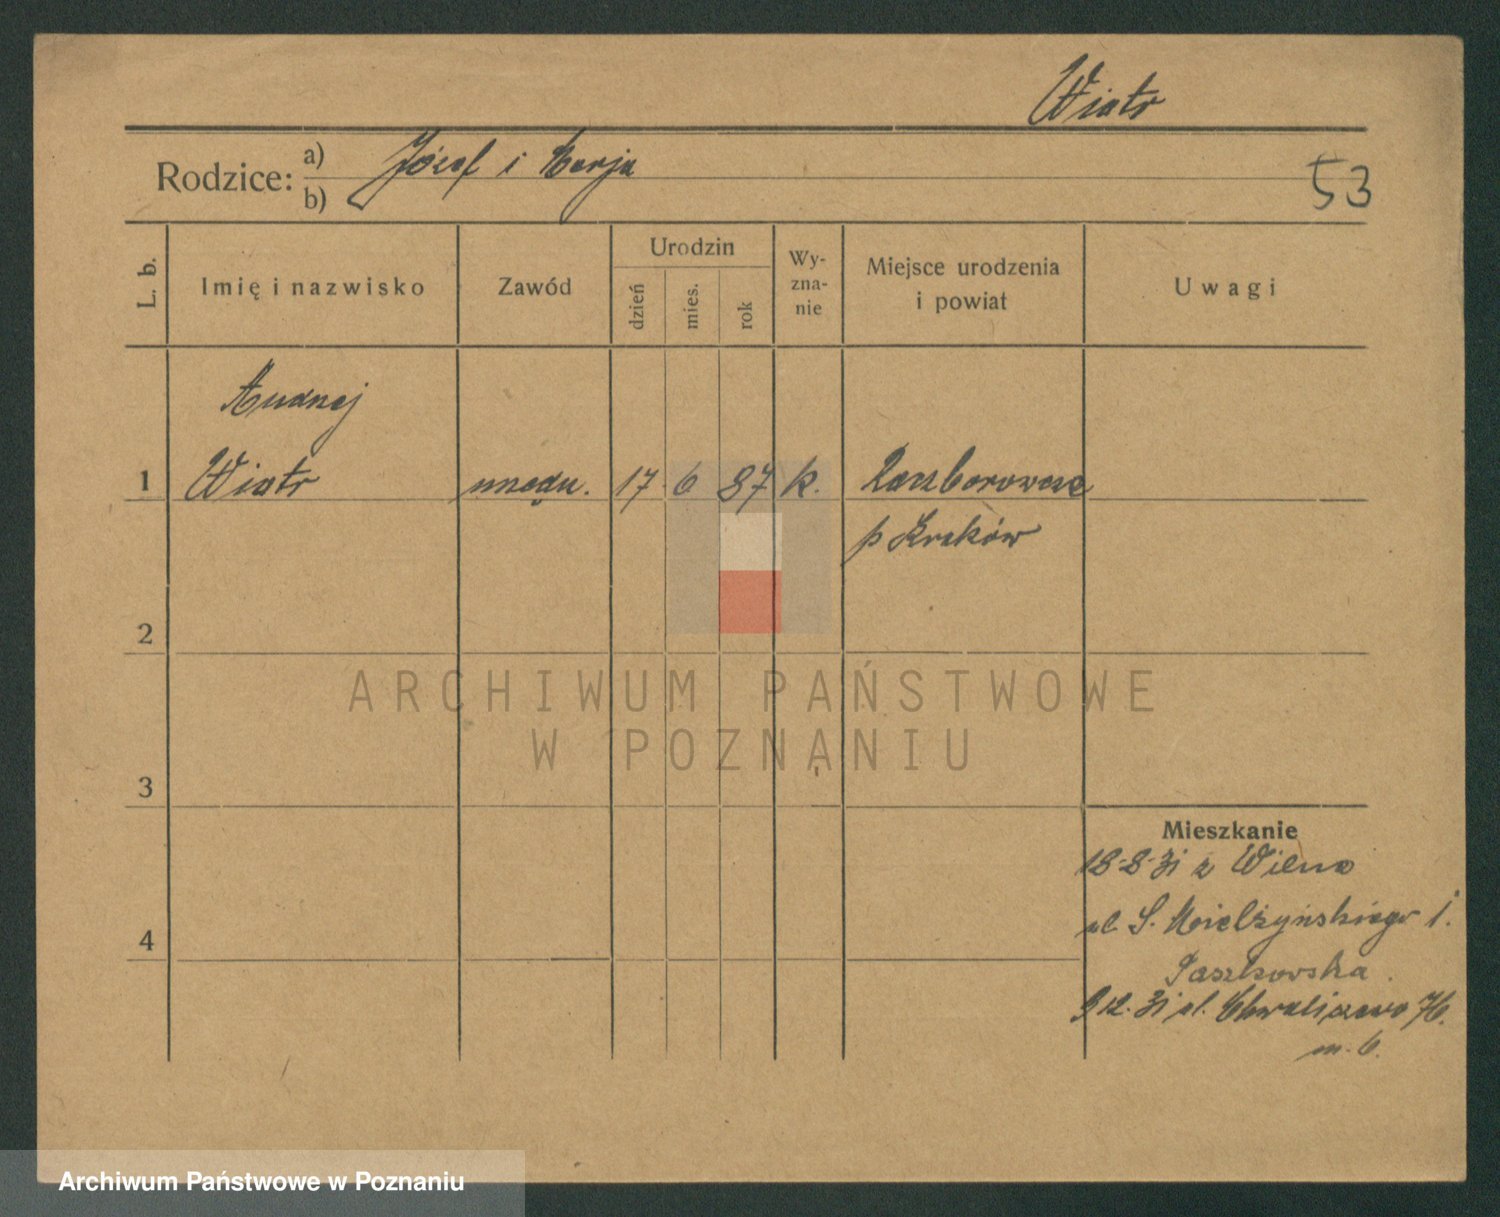 Wiatr
Rodzice: a) Józef i Marja
b)
53
L. b.
Imię i nazwisko
Zawód
Urodzin
dzień
mies.
rok
Wy-
zna-
nie
Miejsce urodzenia
i powiat
Uwagi
Andrzej
1 Wiatr urzędn. 17 6 87 k. Raciborowice
p Kraków
2
3
4
Mieszkanie
18-8-31 z Wilna
ul. S. Mielżyńskiego 1.
Paszkowska.
9 12. 31 ul. Chwaliszewo 76.
m. 6.
ARCHIWUM PAŃSTWOWE
W POZNANIU
Archiwum Państwowe w Poznaniu